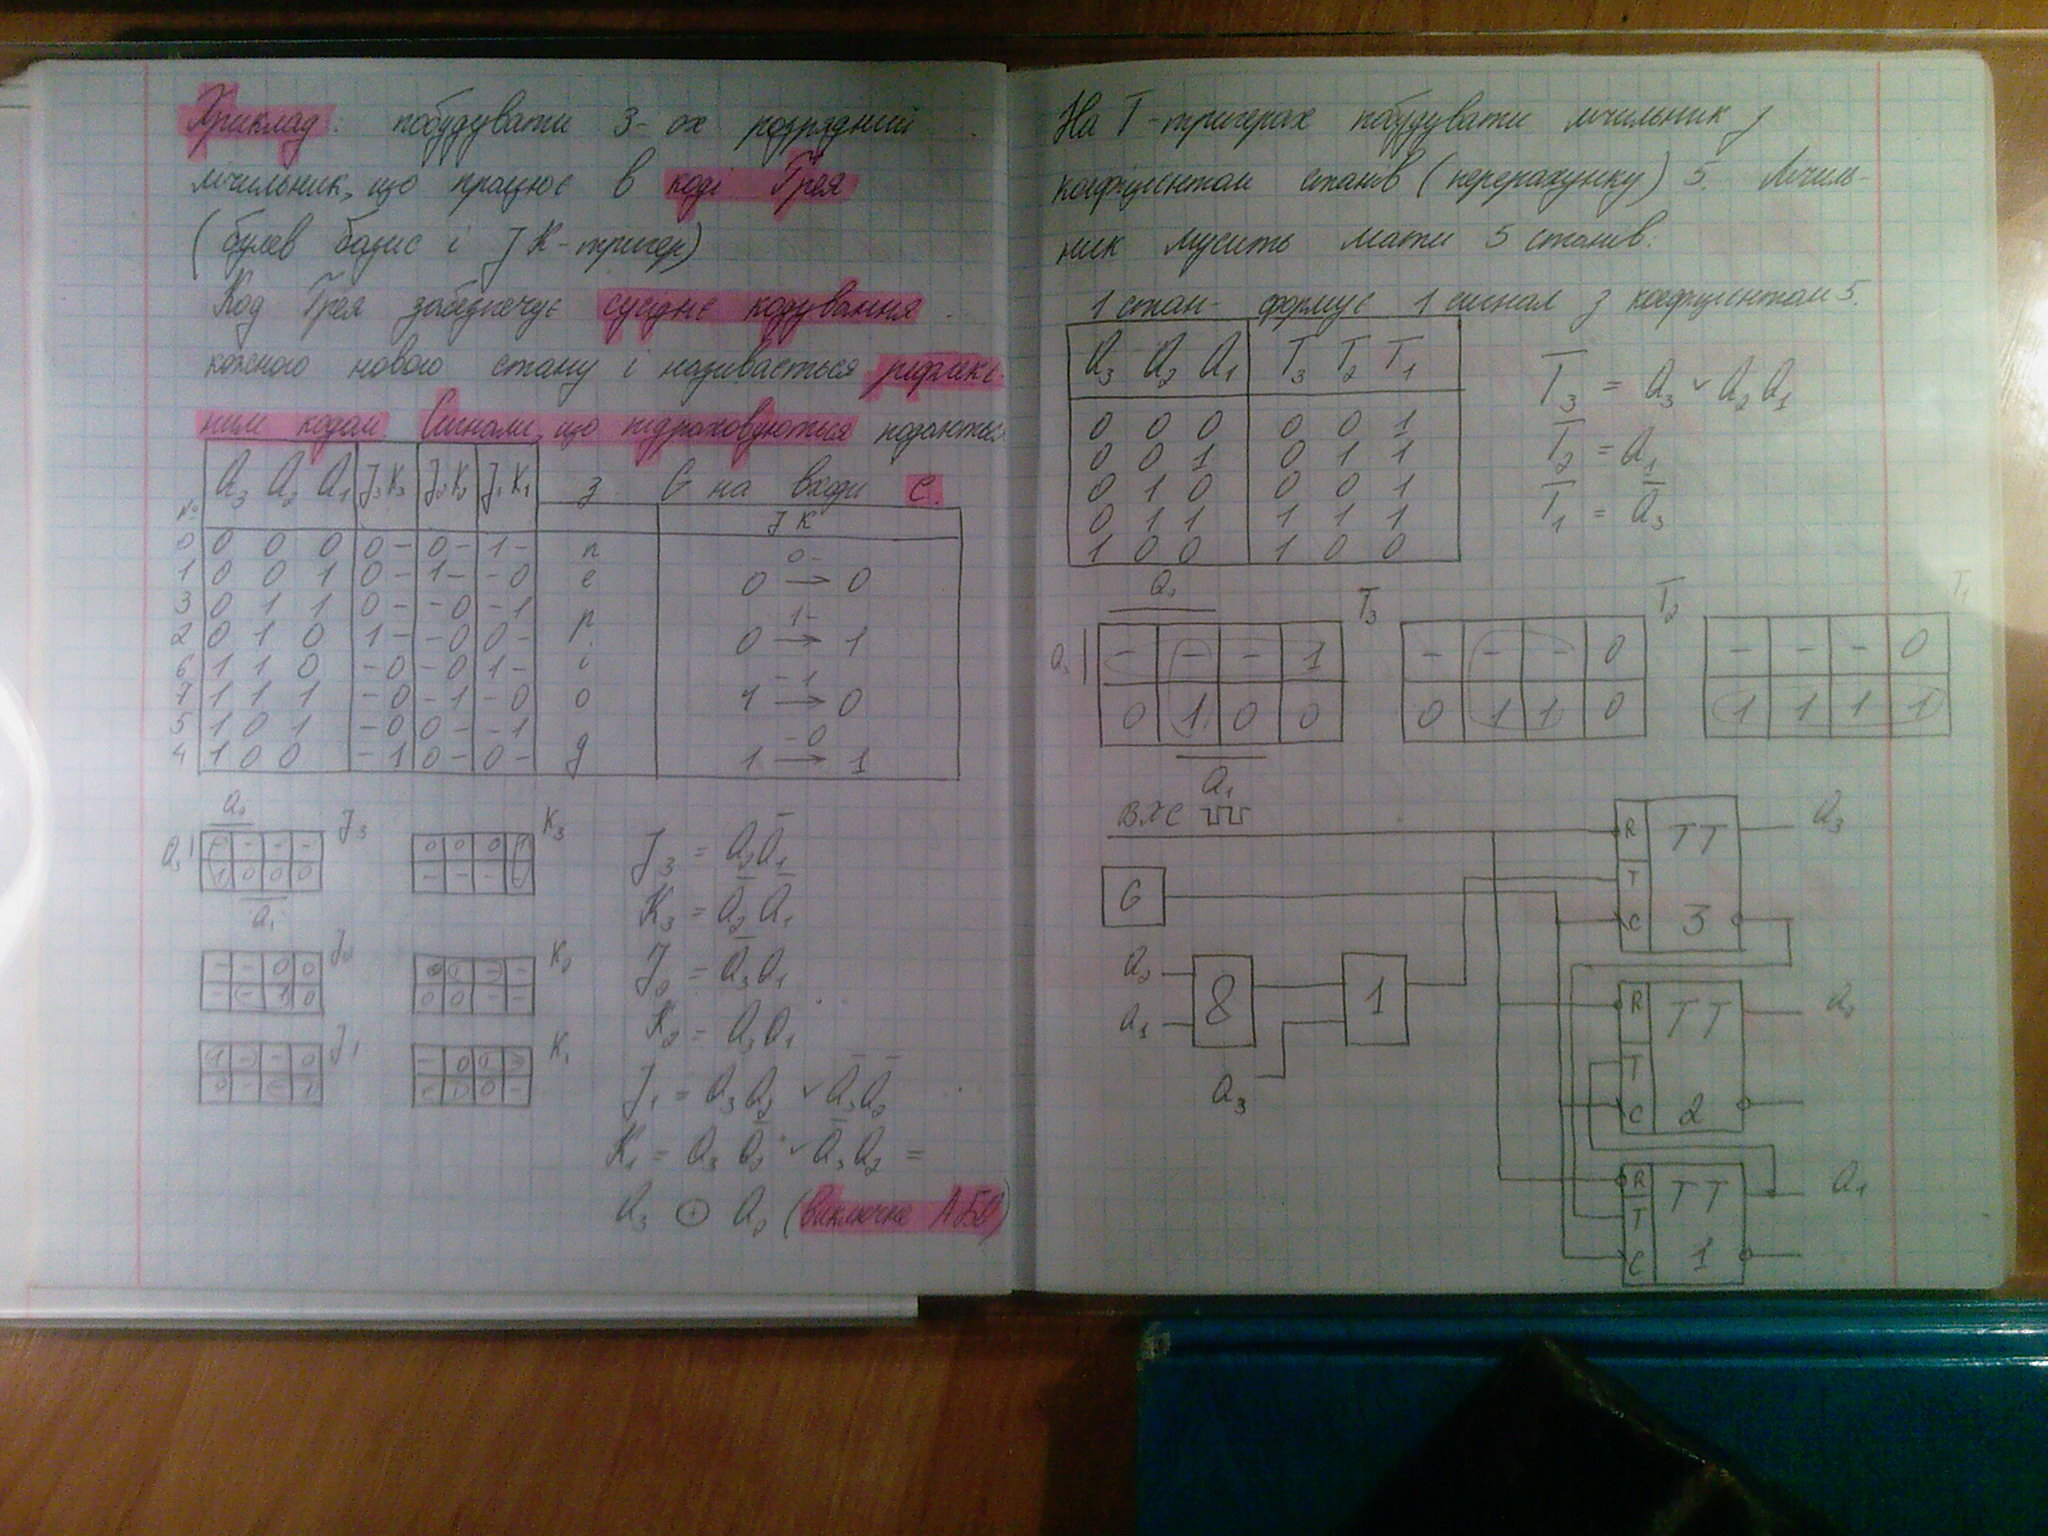 Приклад: побудувати 3-ох розрядний
лічильник, що працює в коді Грея
(булев базис і JK-тригер)
Код Грея забезпечує сусіднє кодування
кожного нового стану і називається рефлекс
ним кодом Сигнали, що підраховуються подаються
з G на входи C.
№ Q3 Q2 Q1 J3 K3 J2 K2 J1 K1
JK
0 0 0 0 0 - 0 - 1 - п
1 0 0 1 0 - 1 - - 0 е
3 0 1 1 0 - - 0 - 1 р
2 0 1 0 1 - - 0 0 - і
6 1 1 0 - 0 - 0 1 - і
7 1 1 1 - 0 - 1 - 0 о
5 1 0 1 - 0 0 - - 1
4 1 0 0 - 1 0 - 0 - д
0-
0 → 0
1-
0 → 1
-1
1 → 0
-0
1 → 1
Q2 J3 K3
Q3
Q1
J2 K2
J1 K1
J3 = Q2Q̅1
K3 = Q̅2 Q̅1
J2 = Q̅3Q1
K2 = Q3Q1
J1 = Q3Q2 ∨ Q̅3Q̅2
K1 = Q3 Q̅2 ∨ Q̅3Q2 =
Q3 ⊕ Q2 (виключне АБО)
На T-тригерах побудувати лічильник з
коефіцієнтом станів (перерахунку) 5. Лічиль-
ник мусить мати 5 станів.
1 стан - формує 1 сигнал з коефіцієнтом 5.
Q3 Q2 Q1 T3 T2 T1
0 0 0 0 0 1
0 0 1 0 1 1
0 1 0 0 0 1
0 1 1 1 1 1
1 0 0 1 0 0
T3 = Q3 ∨ Q2Q1
T2 = Q1
T1 = Q̅3
Q2 T3 T2 T1
Q3 - - - 1 - - - 0 - - - 0
0 1 0 0 0 1 1 0 1 1 1 1
Q1
ВХС
G
Q2
Q1
8
1
Q3
R TT Q3
T
C 3
R TT Q2
T
C 2
R TT Q1
T
C 1